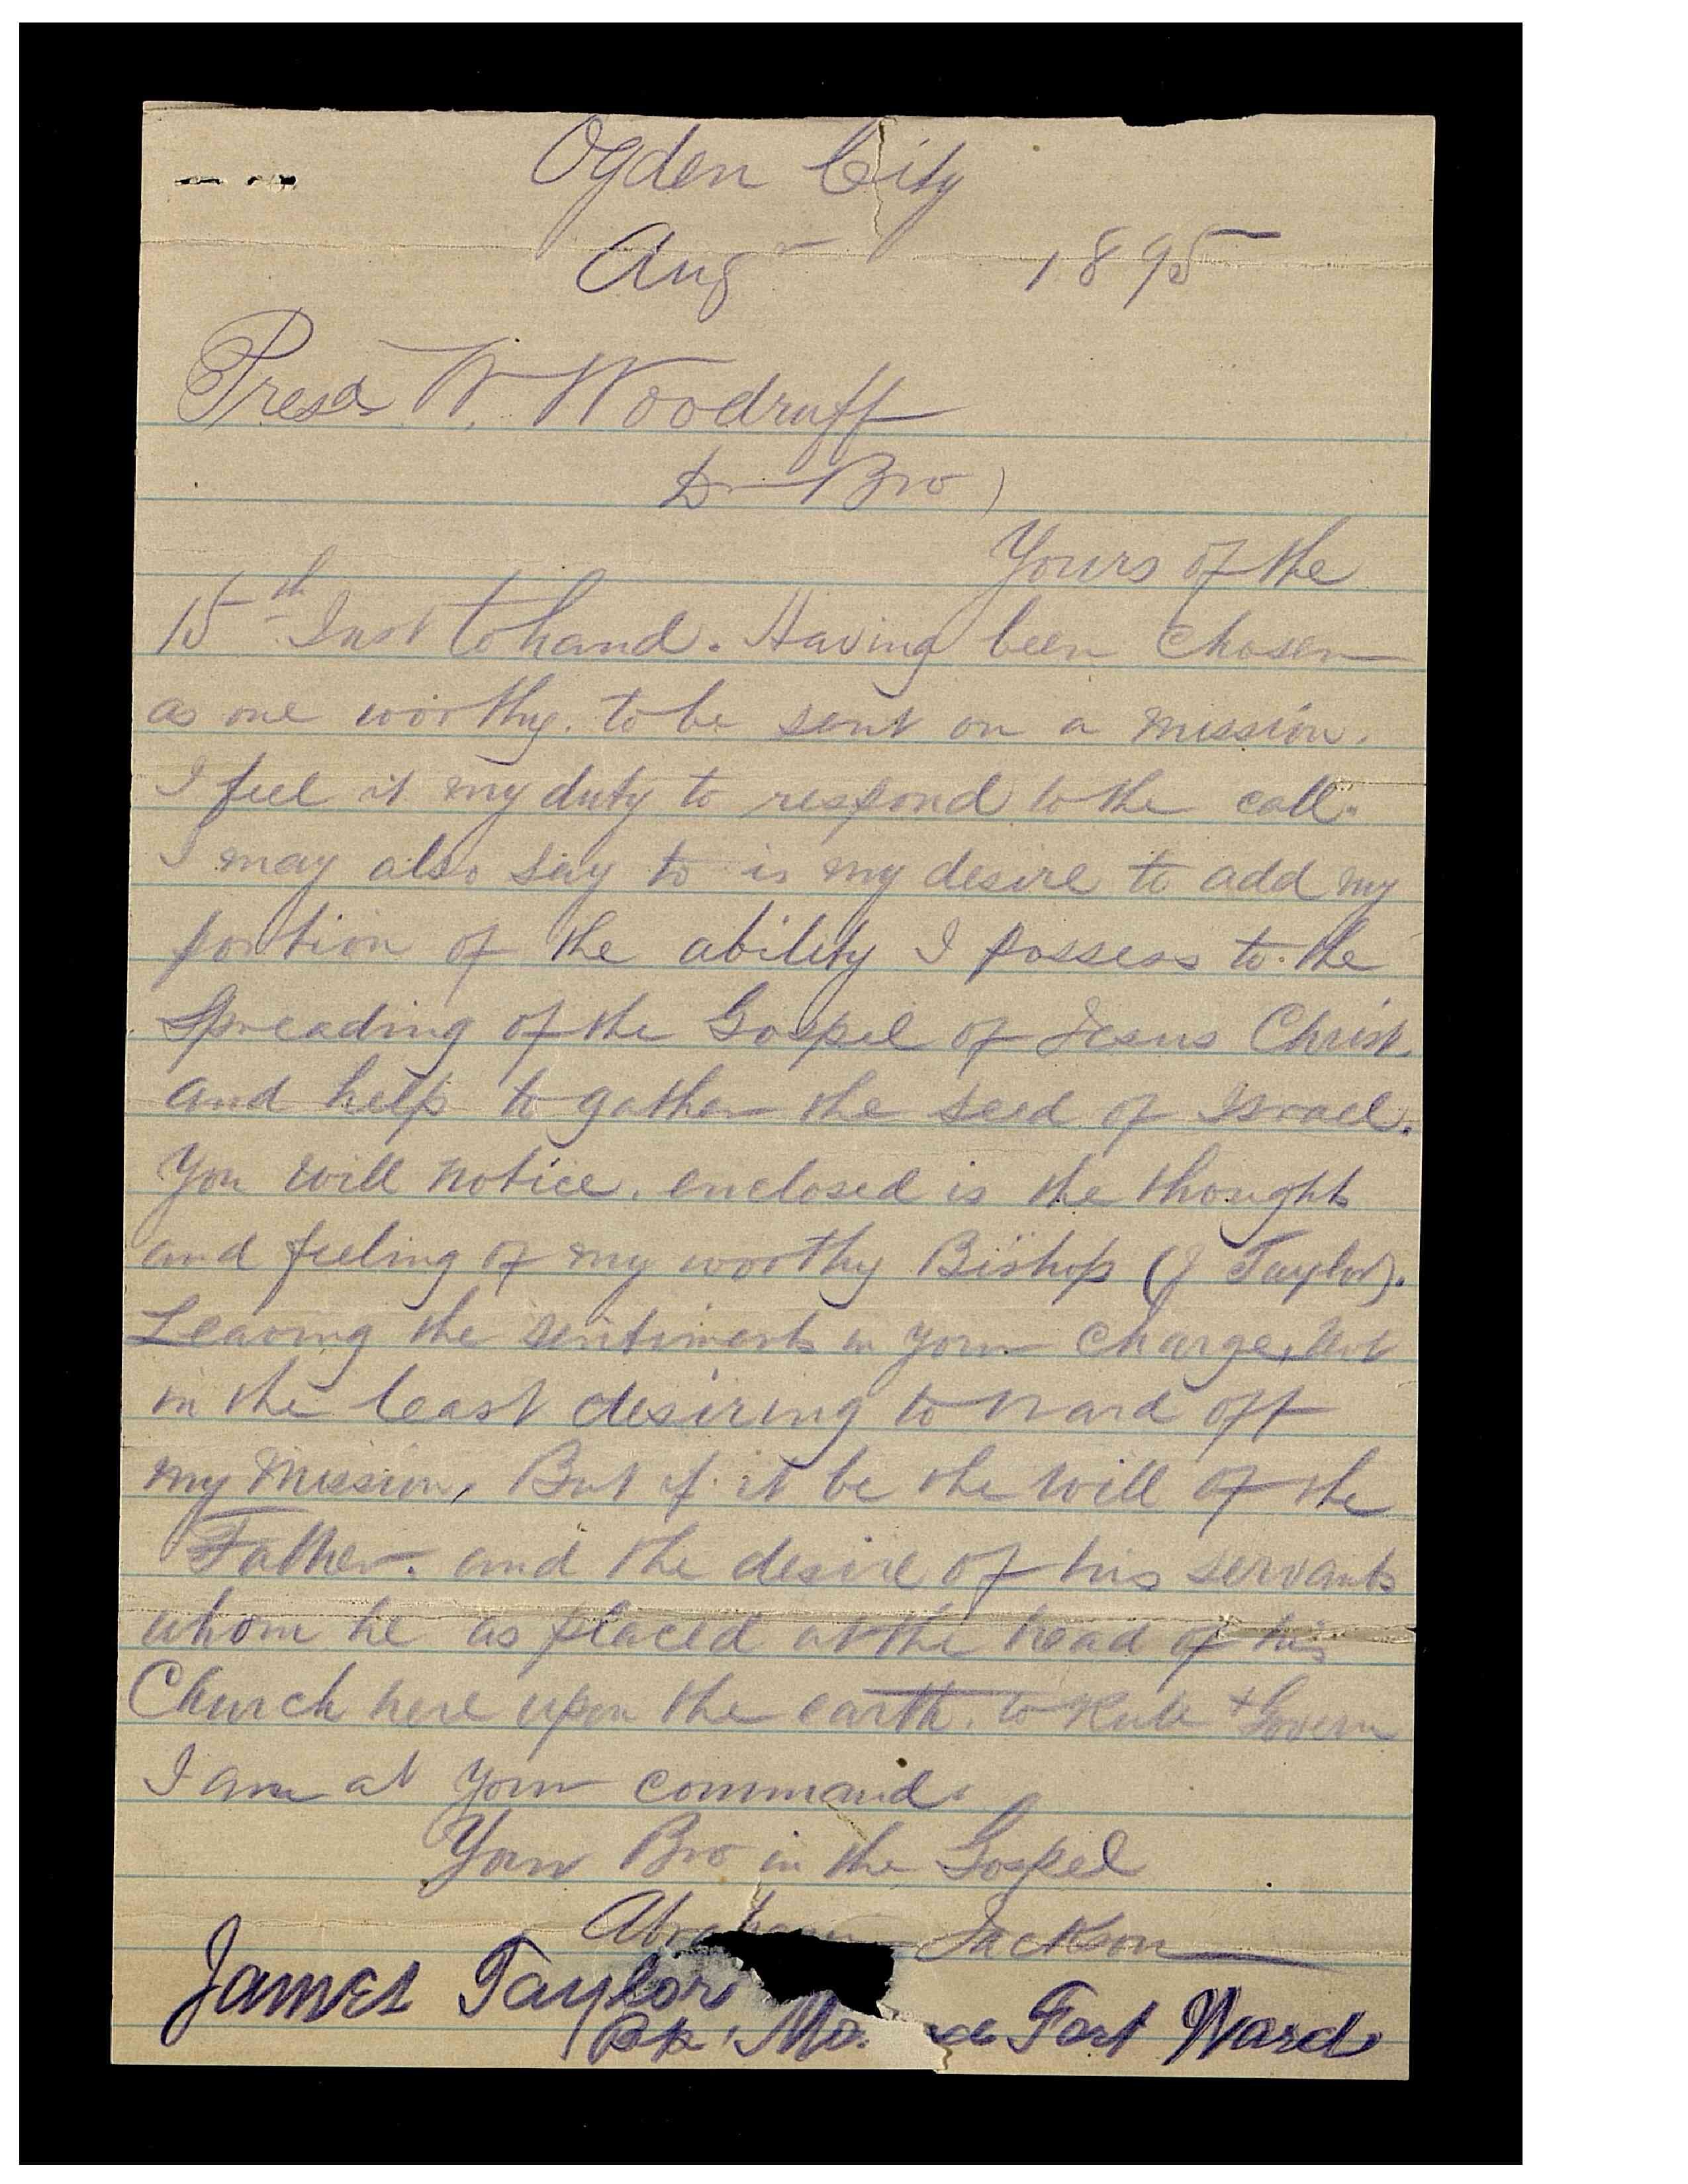 Ogden City
Aug 1895
Prest W. Woodruff
Dr Bro)
Yours of the
15th Inst to hand. Having been chosen
as one worthy. to be sent on a mission.
I feel it my duty to respond to the call.
I may also say to is my desire to add my
portion of the ability I possess to the
Spreading of the Gospel of Jesus Christ.
and help to gather the seed of Israel.
You will notice. enclosed is the thoughts
and feeling of my worthy Bishop (J Taylor).
Leaving the sentiments in your charge, Not
in the least desiring to ward off
my Mission, But if it be the will of the
Father. and the desire of his servants
whom he as placed at the head of his
Church here upon the earth. to Rule + Govern
I am at your command.
Your Bro in the Gospel
Abraham Jackson
James Taylor
Bp Fort Ward